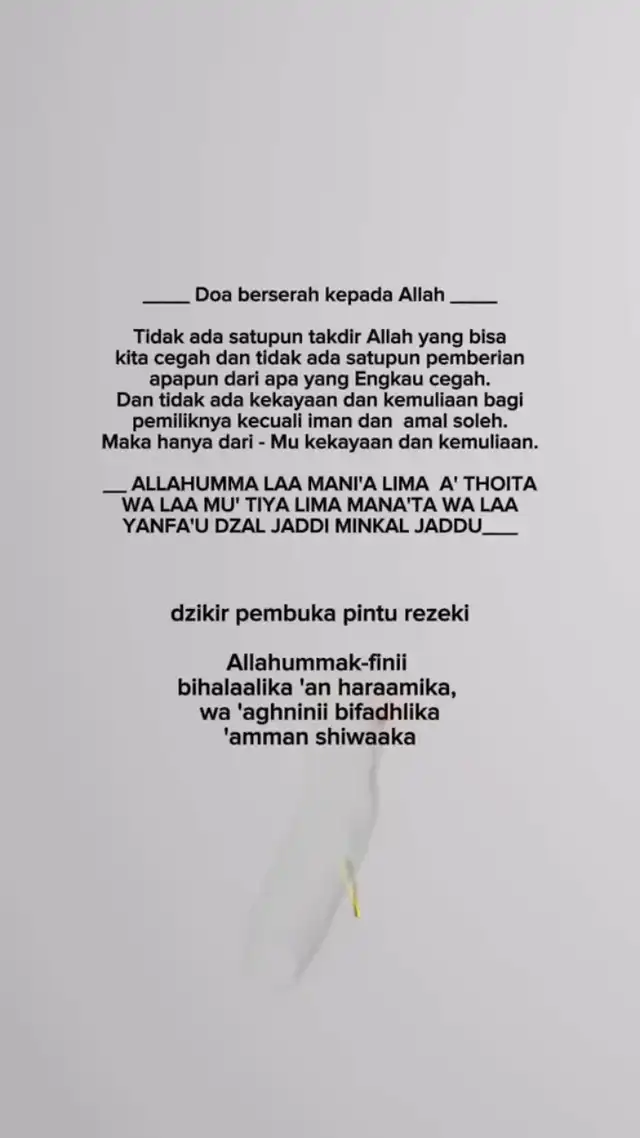 ____ Doa berserah kepada Allah ____
Tidak ada satupun takdir Allah yang bisa
kita cegah dan tidak ada satupun pemberian
apapun dari apa yang Engkau cegah.
Dan tidak ada kekayaan dan kemuliaan bagi
pemiliknya kecuali iman dan amal soleh.
Maka hanya dari - Mu kekayaan dan kemuliaan.
__ ALLAHUMMA LAA MANI'A LIMA A' THOITA
WA LAA MU' TIYA LIMA MANA'TA WA LAA
YANFA'U DZAL JADDI MINKAL JADDU___
dzikir pembuka pintu rezeki
Allahummak-finii
bihalaalika 'an haraamika,
wa 'aghninii bifadhlika
'amman shiwaaka